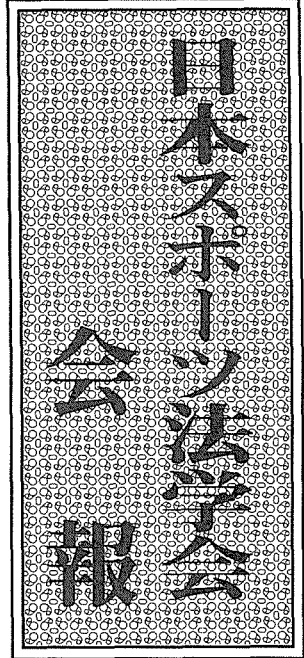 日本スポーツ法学会
会報